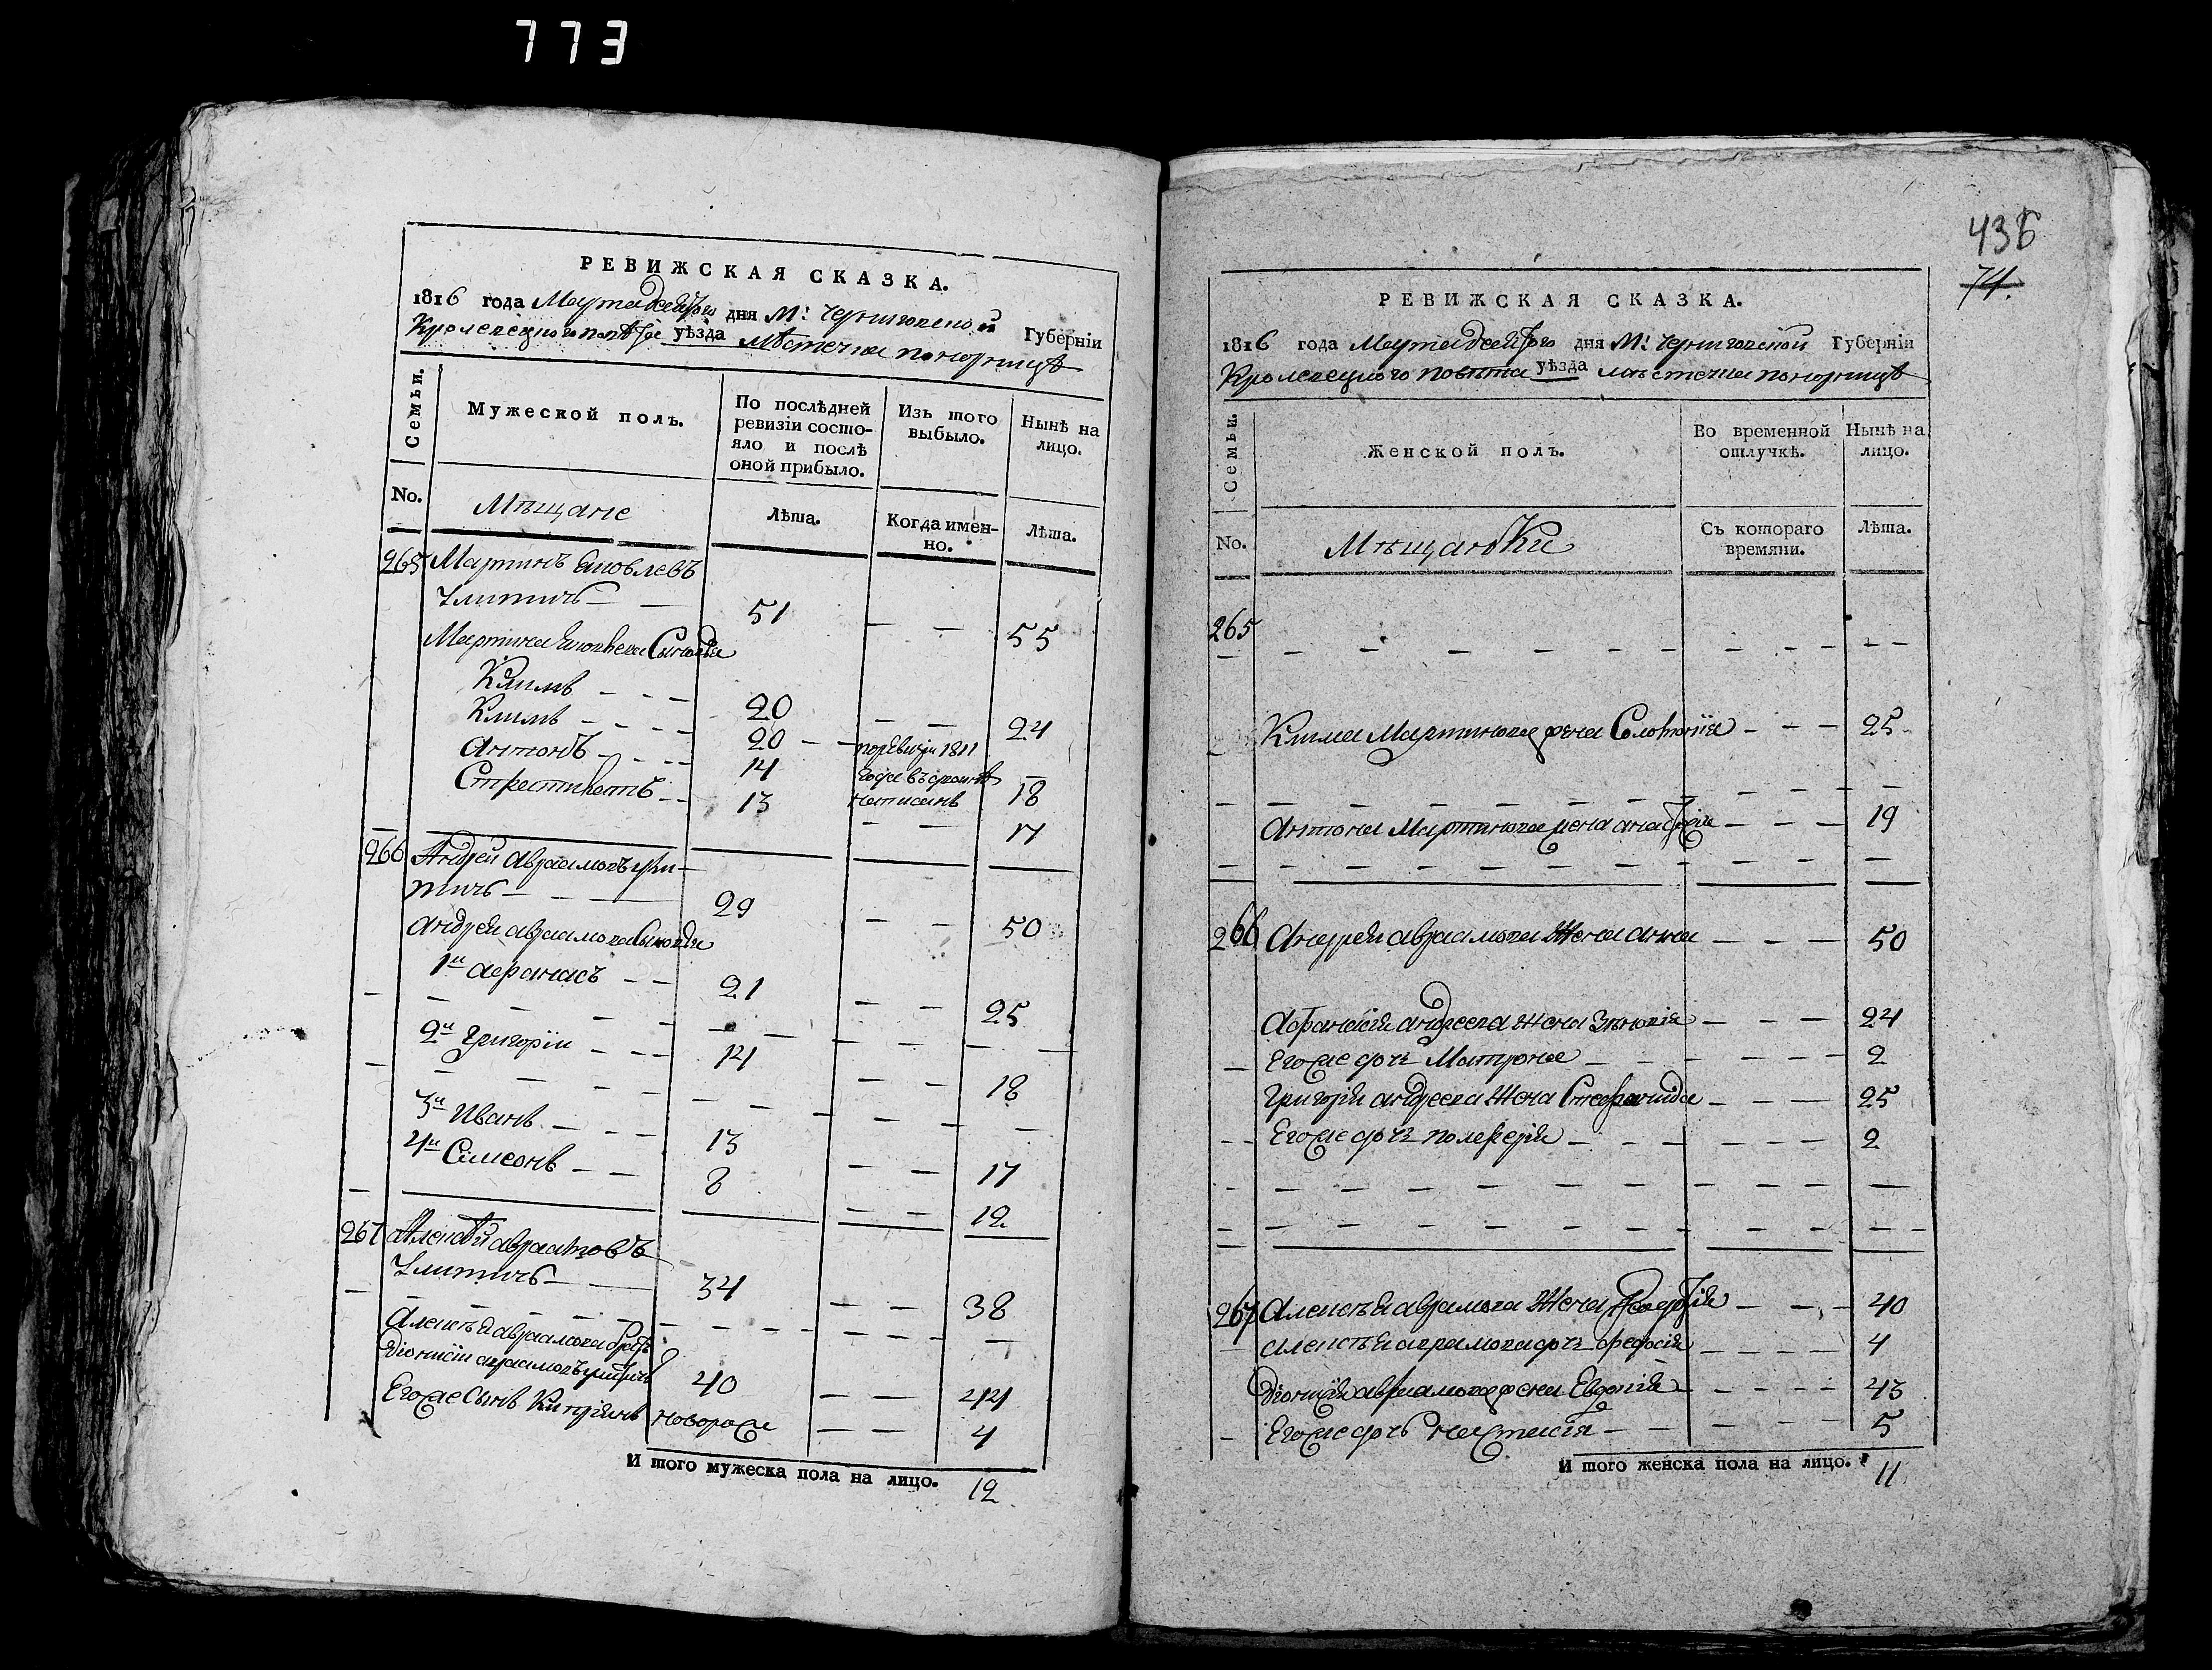 773
РЕВИЖСКАЯ СКАЗКА.
1816 года Марта дня М: Черниговской Губерніи
Кролевецкого повѣта уѣзда мѣстечка понорницѣ
Семьи.
Мужеской полъ.
По послѣдней ревизіи состояло и послѣ оной прибыло.
Изъ того выбыло.
Нынѣ на лицо.
No.
Мѣщане
Лѣта.
Когда именно.
Лѣта.
265 Мартинъ Яковлевъ
51 — — 55
Мартина Яковлева Сыновья
Климъ 20 — — 24
Климъ 20 — — по ревизіи 1811
Антонъ 14 года въ написанъ 18
13 — — 17
266 Андрей Авраамовъ
29 — — 50
Андрея авраамова Сыновья
1й афанасъ 21 — — 25
2й Григорій 14 — — 18
3й Иванъ 13 — — 17
4й Сімеонъ 8 — — 12
267 Алексѣй авраамовъ
34 — — 38
Алексѣя авраамова братъ
Діонисій авраамовъ 40 — — 44
Его же Сынъ Кипріянъ новорож — — 4
И того мужеска пола на лицо. 12
436
74.
РЕВИЖСКАЯ СКАЗКА.
1816 года Марта дня М: Черниговской Губерніи
Кролевецкого повѣта уѣзда мѣстечка понорницѣ
Семьи.
Женской полъ.
Во временной отлучкѣ.
Нынѣ на лицо.
No.
Мѣщанки
Съ котораго времяни.
Лѣта.
265 — — — —
Клима Мартинова жена Соломонія — — — 25
Антона Мартинова жена — — — 19
266 Андрея авраамова жена анна — — — 50
Афанасія андреева жена Зѣновія — — — 24
Его же дочъ Матрона — — — 2
Григорія андреева жена Стефанида — — — 25
Его же дочъ — — — 2
267 Алексѣя аврамова жена — — — 40
Алексѣя аврамова дочъ Феодосія — — — 4
Діонисія авраамова жена Евдокія — — — 43
Его же дочъ — — — 5
И того женска пола на лицо. 11